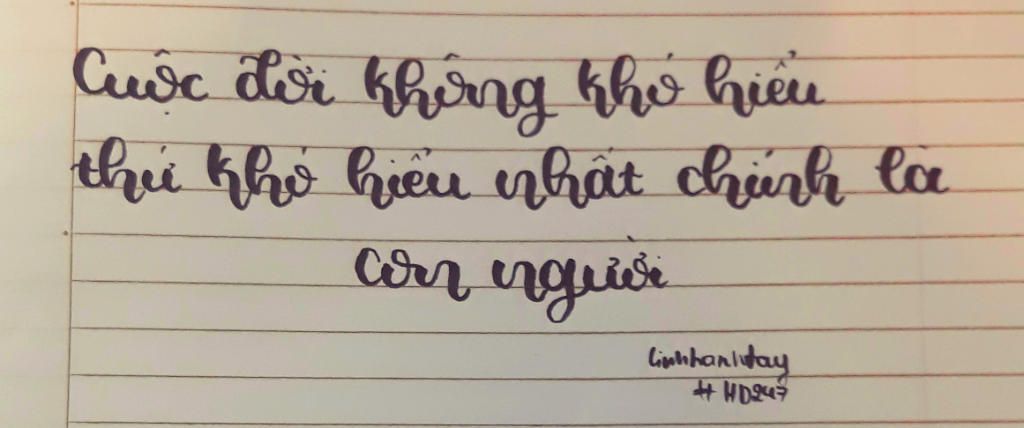 Cuộc đời không khó hiểu
thứ khó hiểu nhất chính là
con người
# HD247